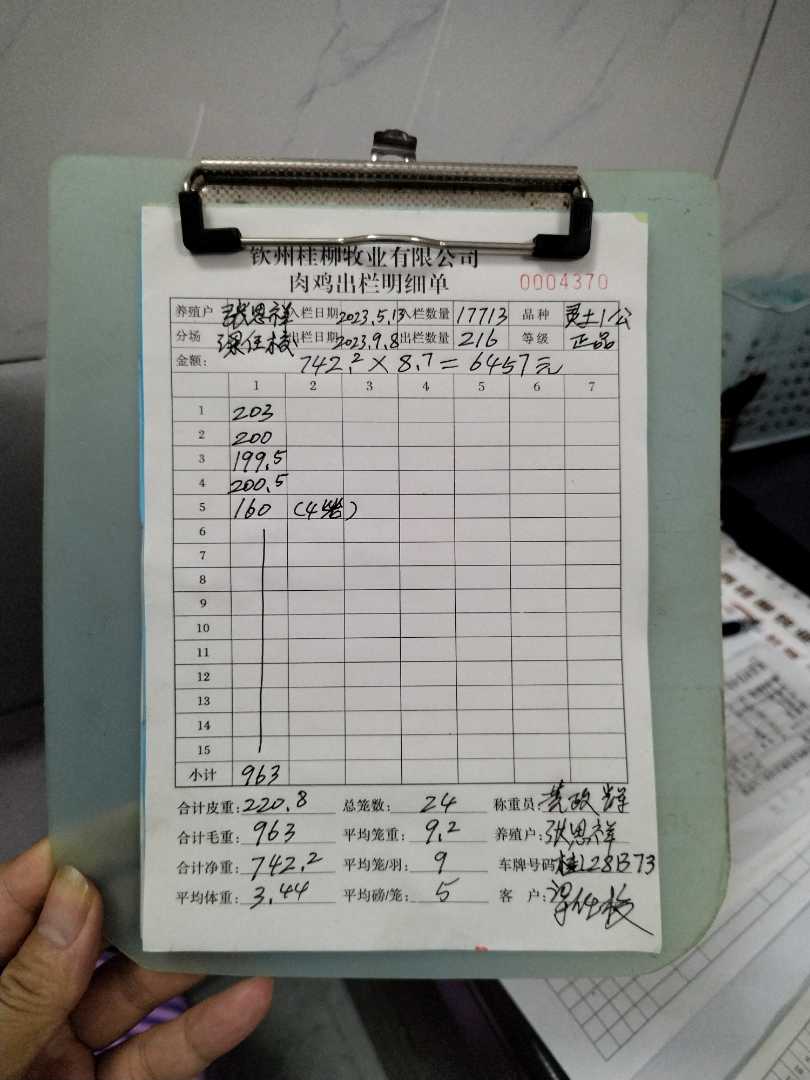 钦州桂柳牧业有限公司
肉鸡出栏明细单 0004370
养殖户 张恩祥 入栏日期 2023.5.13 入栏数量 17713 品种 灵土1公
分场 出栏日期 2023.9.8 出栏数量 216 等级 正品
金额: 742.2×8.7=6457元
1 2 3 4 5 6 7
1 203
2 200
3 199.5
4 200.5
5 160 (4笼)
6
7
8
9
10
11
12
13
14
15
小计 963
合计皮重: 220.8 总笼数: 24 称重员:
合计毛重: 963 平均笼重: 9.2 养殖户: 张恩祥
合计净重: 742.2 平均笼/羽: 9 车牌号码 桂L28B73
平均体重: 3.44 平均磅/笼: 5 客户: